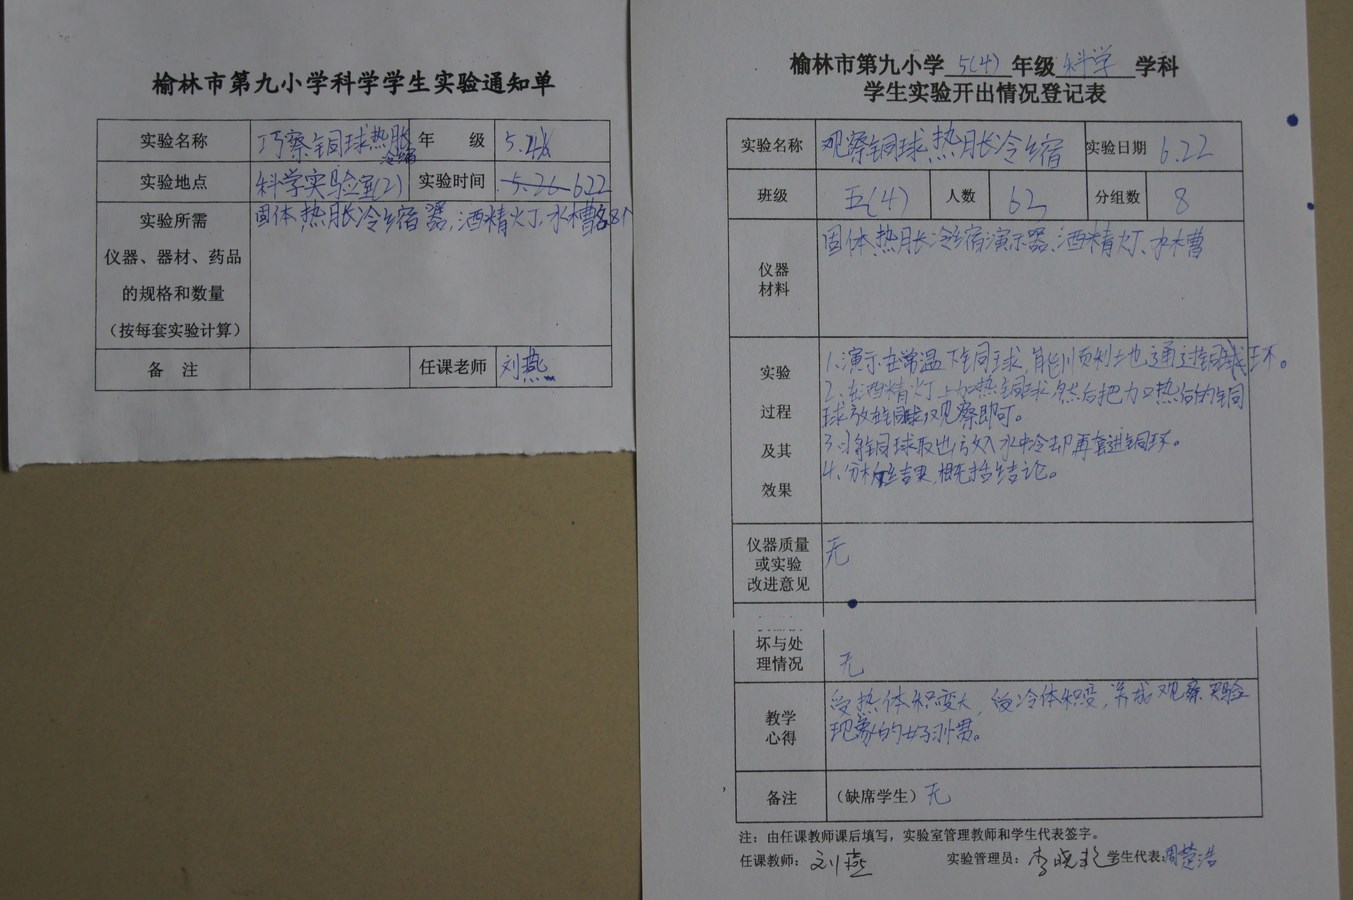 榆林市第九小学科学学生实验通知单
实验名称 巧察铜球热胀冷缩 年 级 5.4
实验地点 科学实验室(2) 实验时间 5.26 6.22
实验所需 固体热胀冷缩器,酒精灯,水槽各8个
仪器、器材、药品
的规格和数量
（按每套实验计算）
备 注 任课老师 刘燕
榆林市第九小学 5(4) 年级 科学 学科
学生实验开出情况登记表
实验名称 观察铜球热胀冷缩 实验日期 6.22
班级 五(4) 人数 62 分组数 8
仪器材料 固体热胀冷缩演示器、酒精灯、水槽
实验过程及其效果
1.演示在常温下铜球,能顺利地通过铜球环。
2.在酒精灯上加热铜球然后把加热后的铜
球放在铜球观察即可。
3.将铜球取出方放入水中冷却再套进铜环。
4.分析结果,概括结论。
仪器质量
或实验
改进意见 无
坏与处
理情况 无
教学心得 受热体积变大,受冷体积变,养成观察实验
现象的好习惯。
备注 （缺席学生）无
注：由任课教师课后填写，实验室管理教师和学生代表签字。
任课教师：刘燕 实验管理员：李晓 学生代表:周楚浩